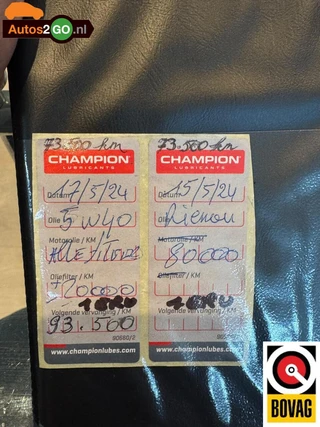 Autos2GO.nl
73.500 km
CHAMPION
LUBRICANTS
Datum 17/5/24
Olie 5W40
Motorolie / KM
Oliefilter / KM
20000
Volgende vervanging / KM
93.500
www.championlubes.com
73.500 km
CHAMPION
LUBRICANTS
Datum 15/5/24
Olie
Motorolie / KM
80000
Oliefilter / KM
Volgende vervanging / KM
www.championlubes.com
BOVAG